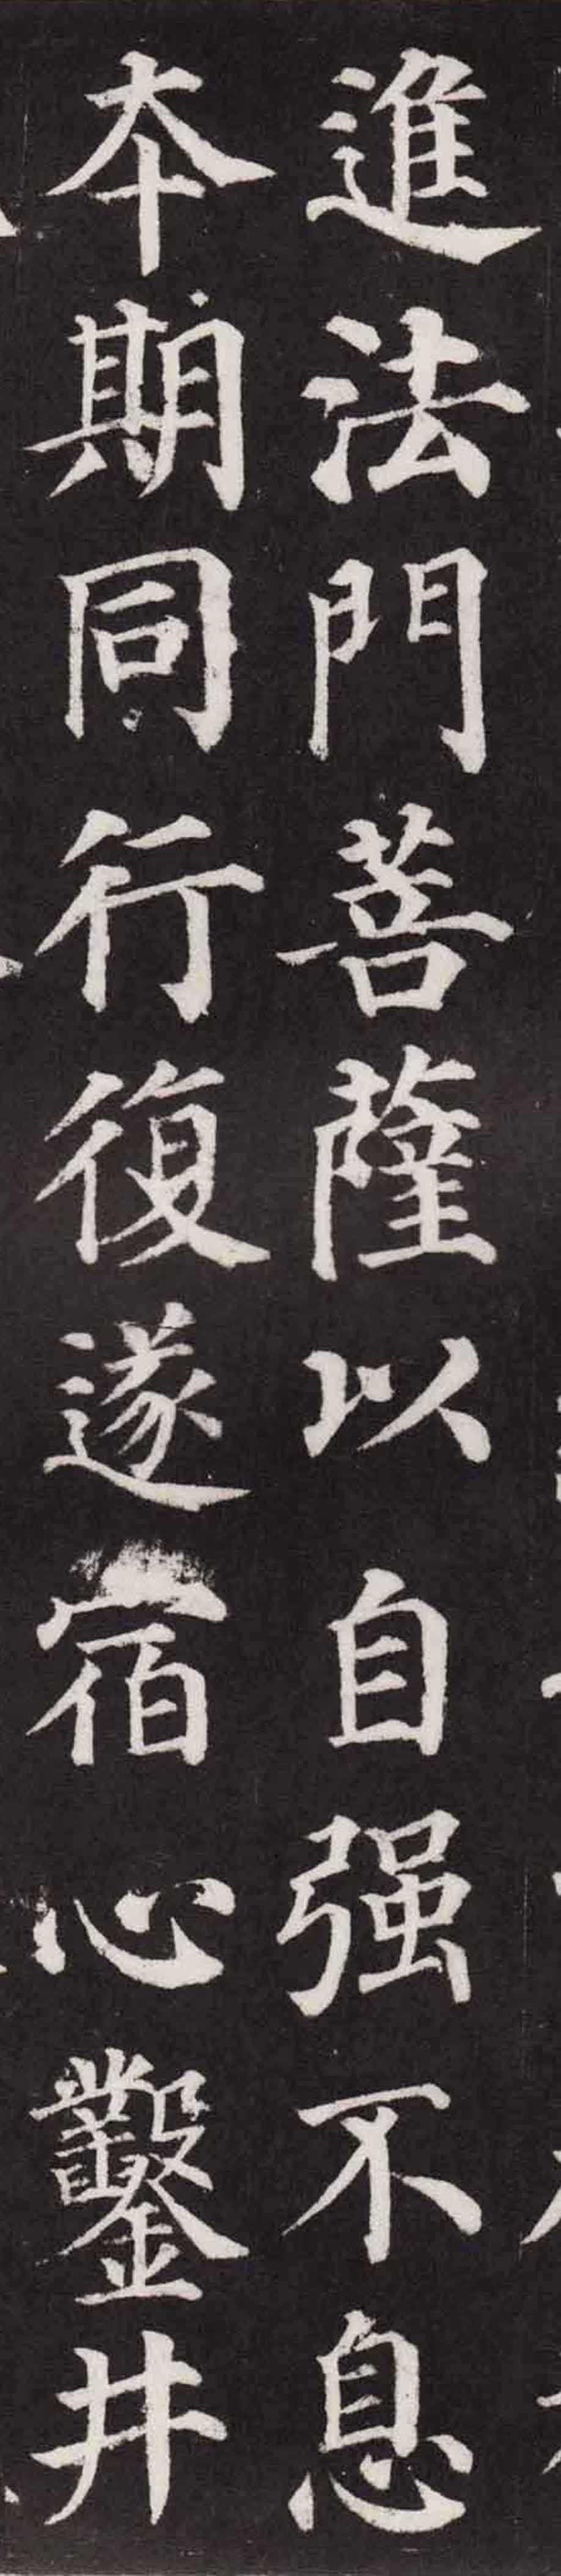 進法門菩薩以自强不息
本期同行復遂宿心鑿井